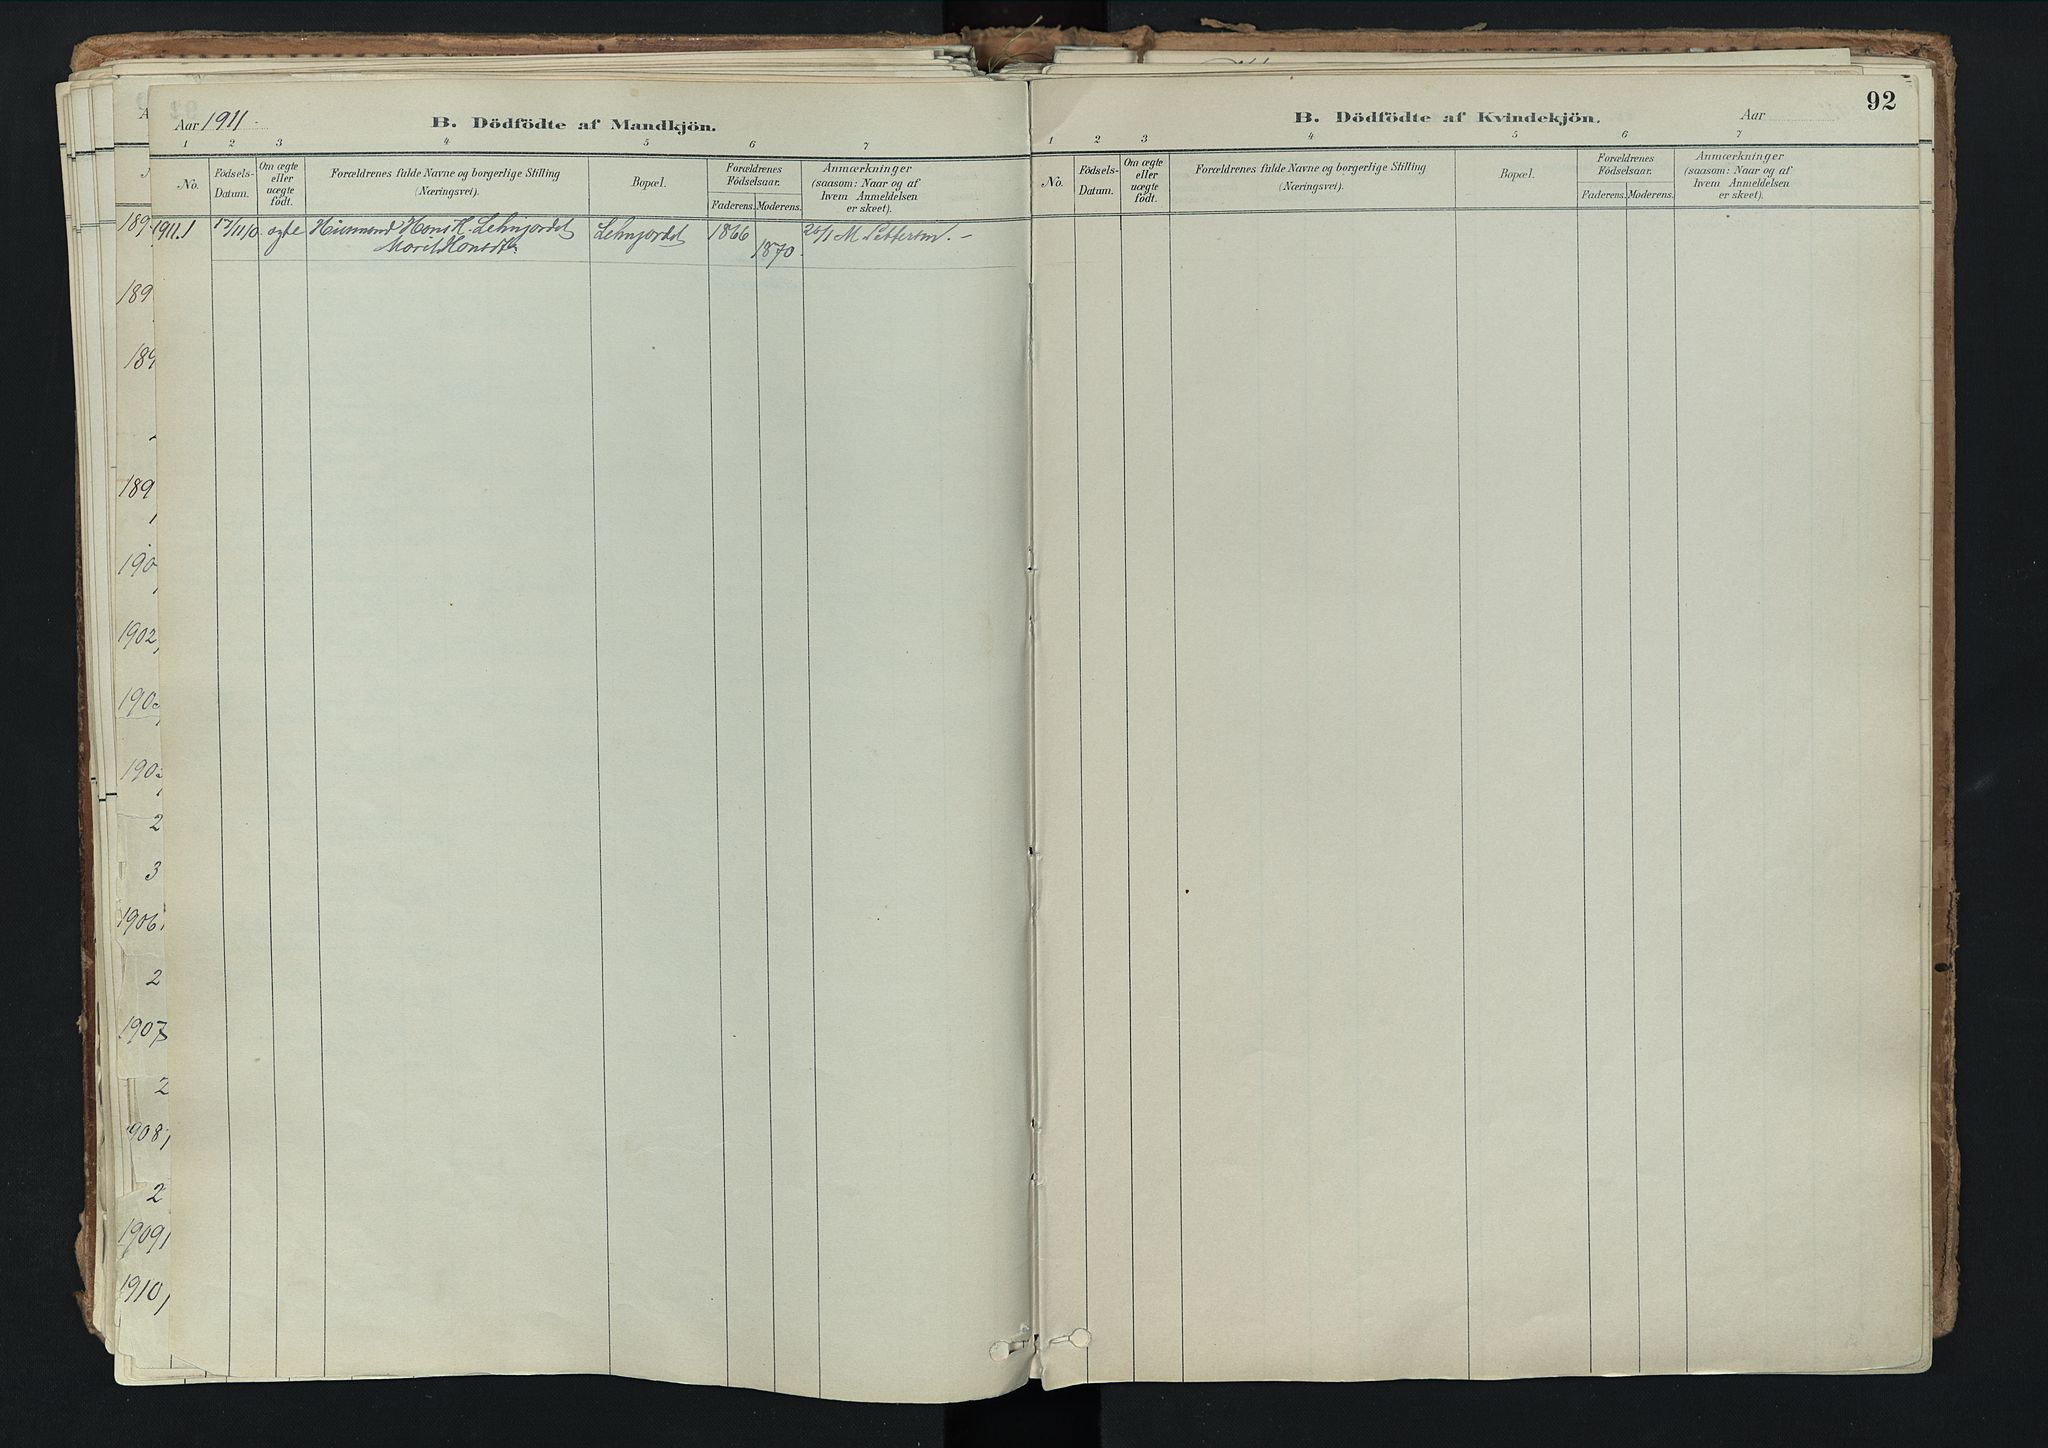 Aar 1911.
B. Dödfödte af Mandkjön.
1 2 3 4 5 6 7
No.
Födsels-
Datum.
Om ægte
eller
uægte
födt.
Forældrenes fulde Navne og borgerlige Stilling
(Næringsvei).
Bopæl.
Forældrenes
Födselsaar.
Faderens. Moderens.
Anmærkninger
(saasom: Naar og af
hvem Anmeldelsen
er skeet).
1911.1 ægte Husmand Hans H. Lehnjordet Lehnjordet 1866
Marit Hansdtr. 1870.
92
B. Dödfödte af Kvindekjön. Aar
1 2 3 4 5 6 7
No.
Födsels-
Datum.
Om ægte
eller
uægte
födt.
Forældrenes fulde Navne og borgerlige Stilling
(Næringsvei).
Bopæl.
Forældrenes
Födselsaar.
Faderens. Moderens.
Anmærkninger
(saasom: Naar og af
hvem Anmeldelsen
er skeet).
189
189
189
189
1
190
1902,
190
190
2
3
1906,
2
1907
2
908,
2
1909,
1910,